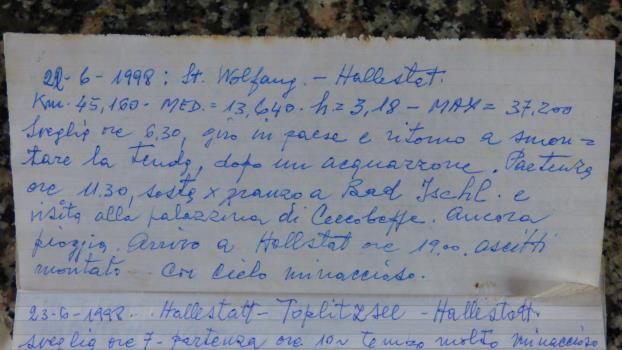 22-6-1998: St. Wolfang. - Hallestat.
Km. 45,160. MED. = 13,640. h = 3,18 - MAX = 37.200
Sveglia ore 6,30, giro in paese e ritorno a smon=
tare la tenda, dopo un acquazzone. Partenza
ore 11.30, sosta x pranzo a Baad Ischl. e
visita alla palazzina di Ceccobeffe. Ancora
pioggia. Arrivo a Hallstat ore 19,00. ascitti
montato con cielo minaccioso.
23-6-1998. Hallestatt - Toplitzsee - Hallestatt.
Sveglia ore 7 - partenza ore 10 tempo molto minaccioso